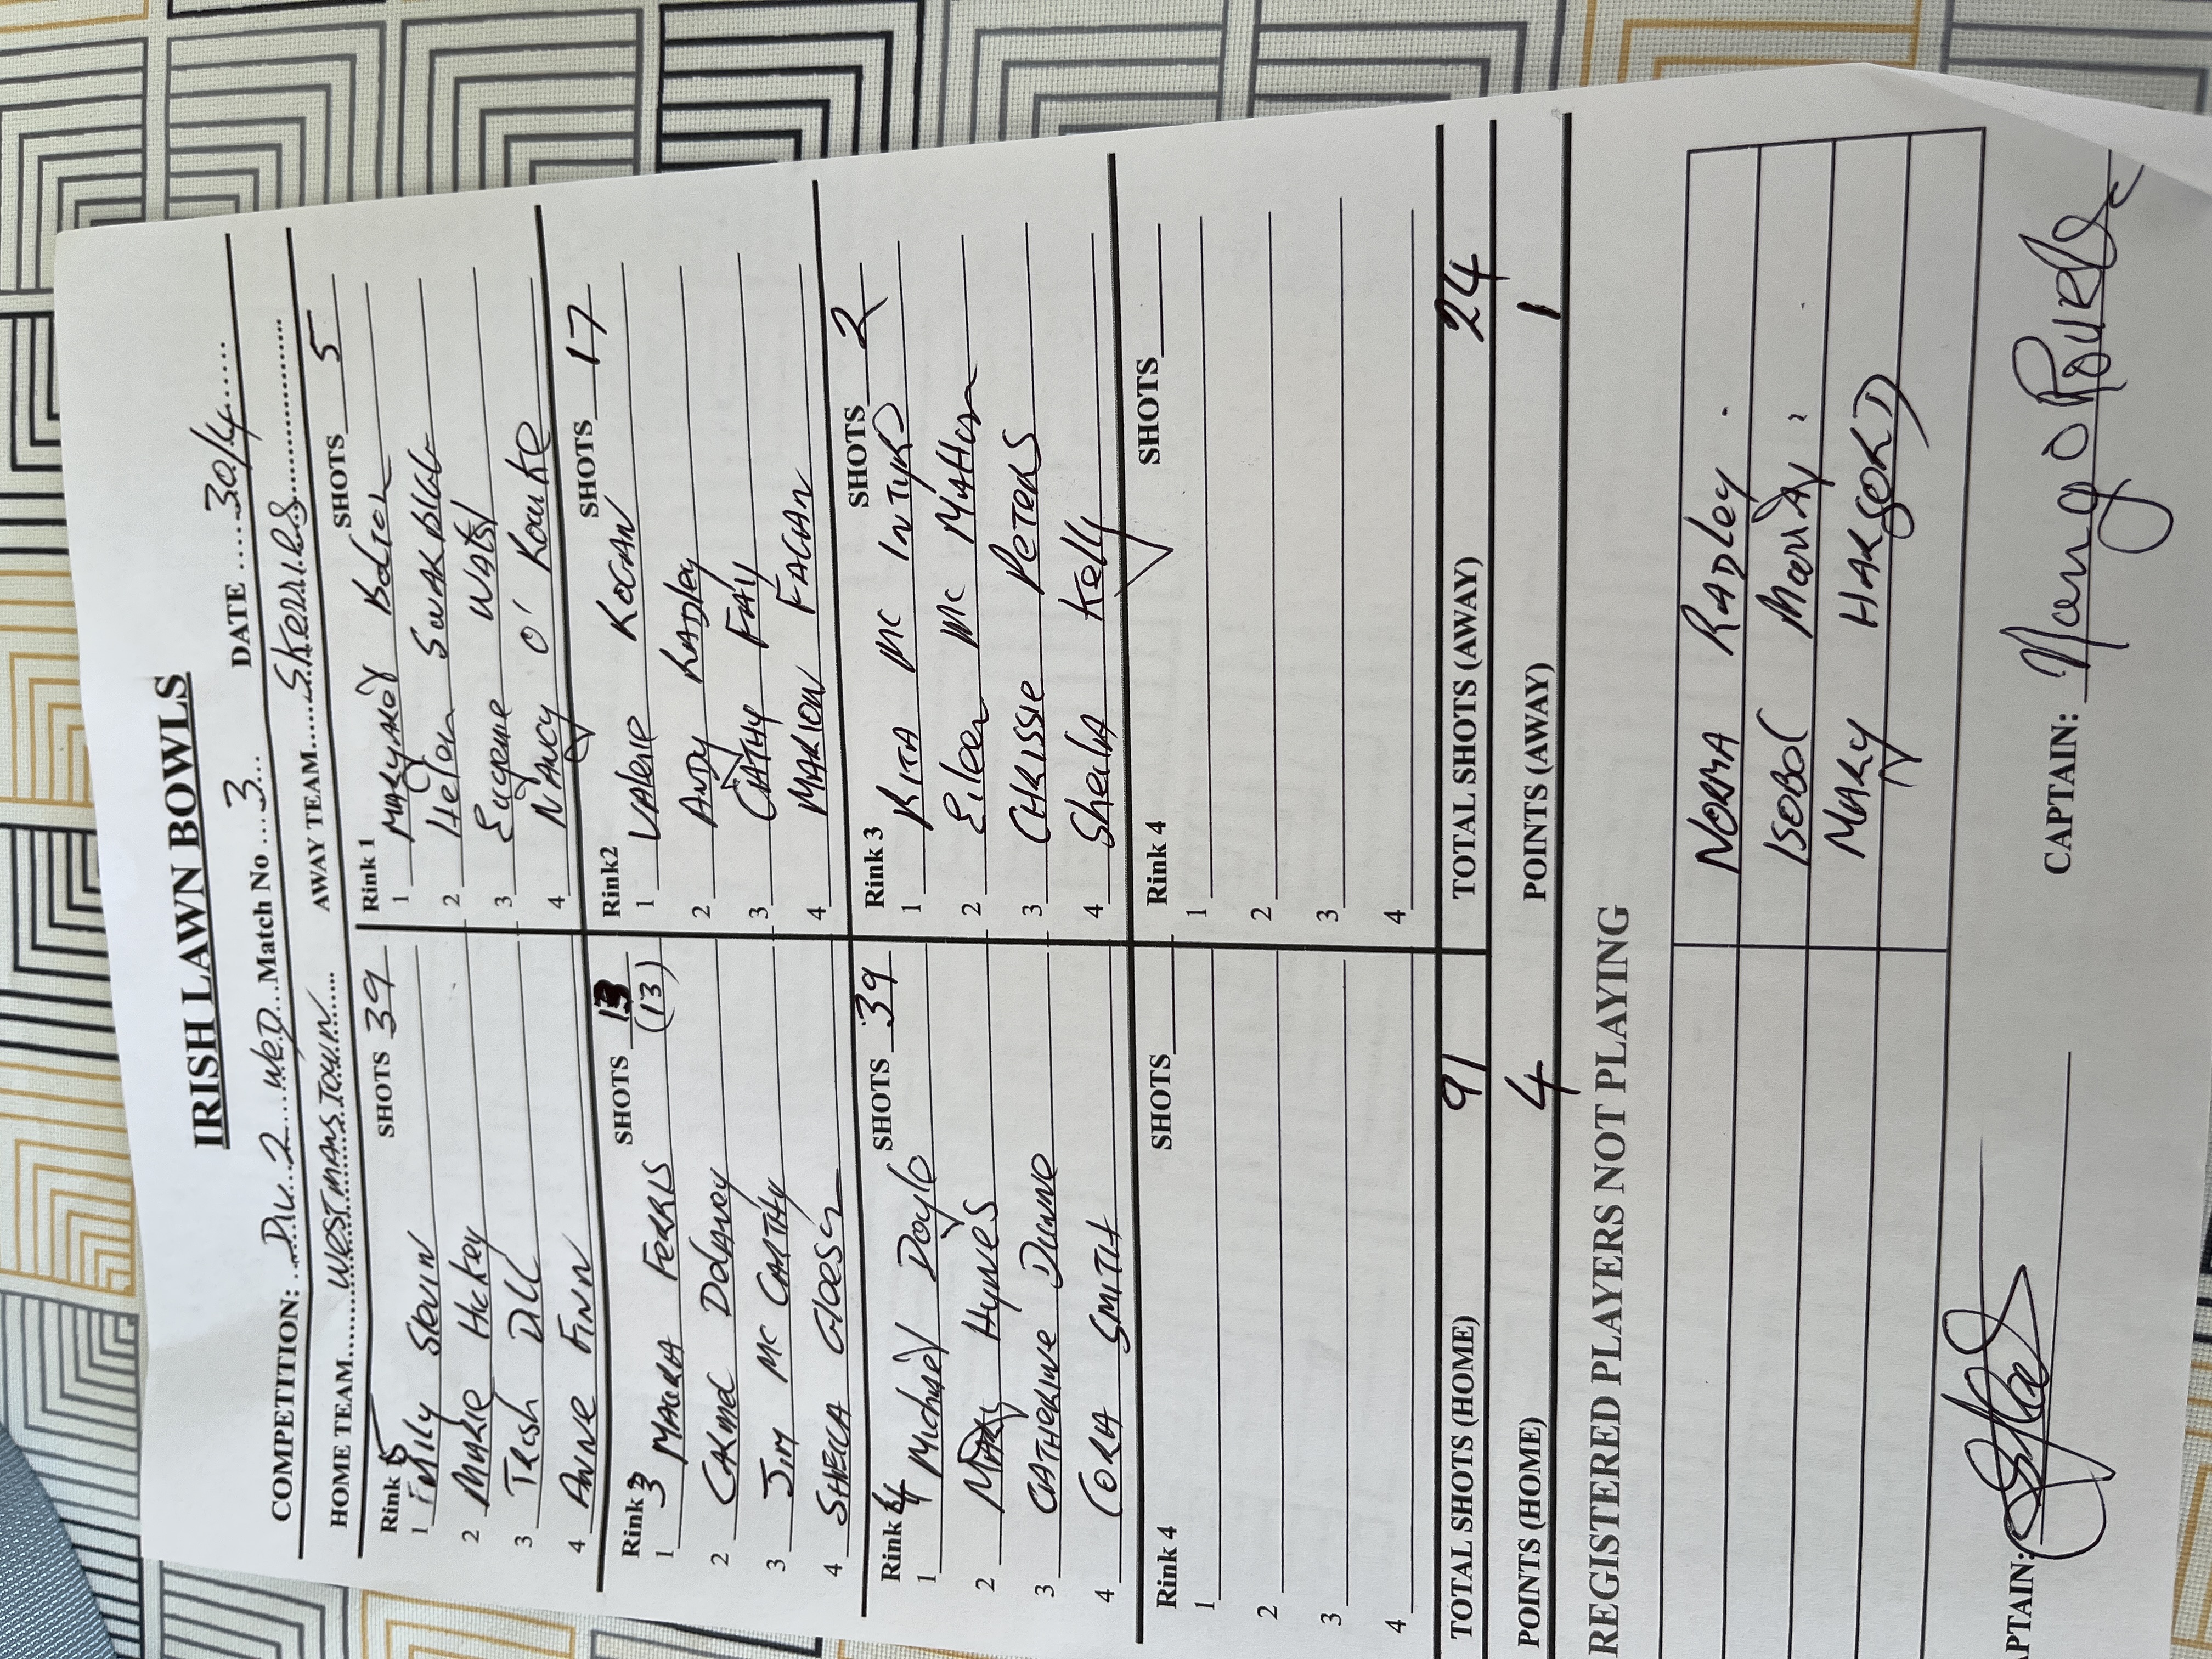 IRISH LAWN BOWLS
COMPETITION: Div 2 WED Match No 3 DATE 30/4
HOME TEAM WESTMANSTOWN AWAY TEAM Skerries
Rink 5 SHOTS 39
1 Emily Slevin
2 MARIE Hickey
3 Trish Dill
4 ANNE FINN
Rink 1 SHOTS 5
1 Margaret Bolton
2 Helen
3 Eugene Walsh
4 NANCY O' Rourke
Rink 3 SHOTS 13
(13)
1 MAURA FERRIS
2 CARMEL Delaney
3 JIM Mc CARTHY
4 SHEILA
Rink2 SHOTS 17
1 VALERIE ROGAN
2 ANDY RADley
3 CATHY FAY
4 MARION FAGAN
Rink 4 SHOTS 39
1 Michael Doyle
2 Mary HyNES
3 CATHERINE DUNNE
4 CORA SMITH
Rink 3 SHOTS 2
1 RITA Mc INTYRE
2 Eileen Mc Mahon
3 CHRISSIE PETERS
4 Sheila Kelly
Rink 4 SHOTS
1
2
3
4
Rink 4 SHOTS
1
2
3
4
TOTAL SHOTS (HOME) 91 TOTAL SHOTS (AWAY) 24
POINTS (HOME) 4 POINTS (AWAY) 1
REGISTERED PLAYERS NOT PLAYING
NORMA RADLEY
ISOBEL
MARY HARFORD
PTAIN: CAPTAIN: Nancy O Rourke